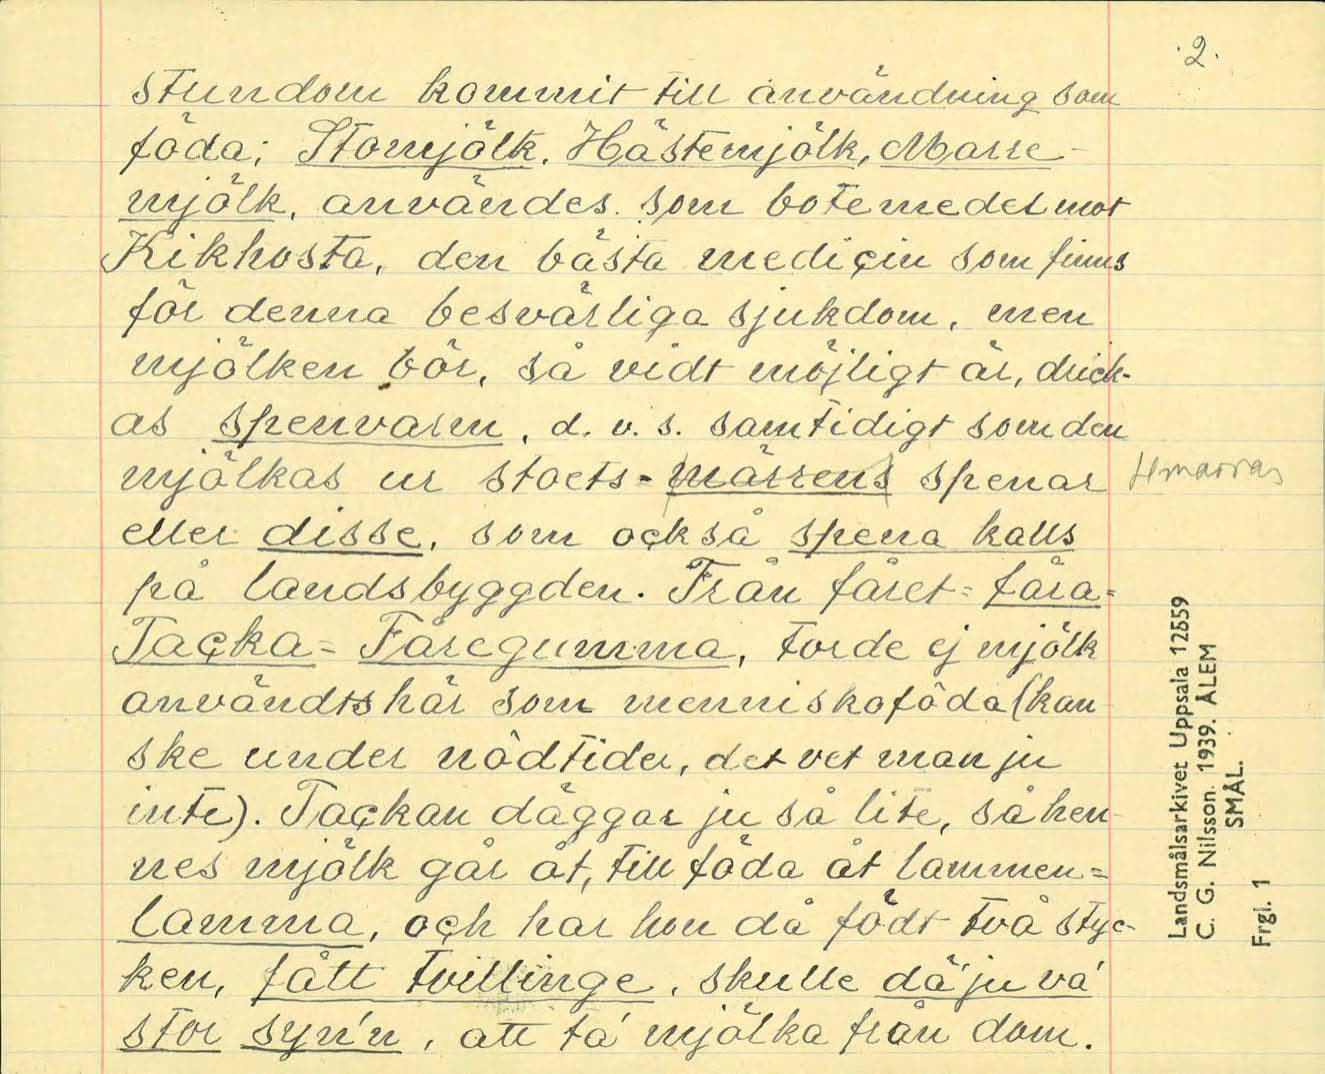 2.
stundom kommit till användning som
föda; Stomjölk. Hästemjölk, Marre-
mjölk, användes som botemedel mot
Kikhosta, den bästa mediçin som finns
för denna besvärliga sjukdom, men
mjölken bör, så vidt möjligt är, drick-
as spenvarm, d. v. s. samtidigt som den
mjölkas ur stoets- märrens spenar
eller disse, som också spena kalls
på landsbyggden. Från fåret= fåra=
Tacka= Fåregumma, torde ej mjölk
användts här som menniskoföda (kan
ske under nödtider, det vet man ju
inte). Tackan däggar ju så lite, så hen-
nes mjölk går åt, till föda åt lammen=
lamma, och har hon då födt två styc-
ken, fått tvillinge, skulle dä' ju va'
stor syn'n, att ta' mjölka från dom.
Landsmålsarkivet Uppsala 12559
C. G. Nilsson. 1939. ÅLEM
SMÅL.
Frgl. 1